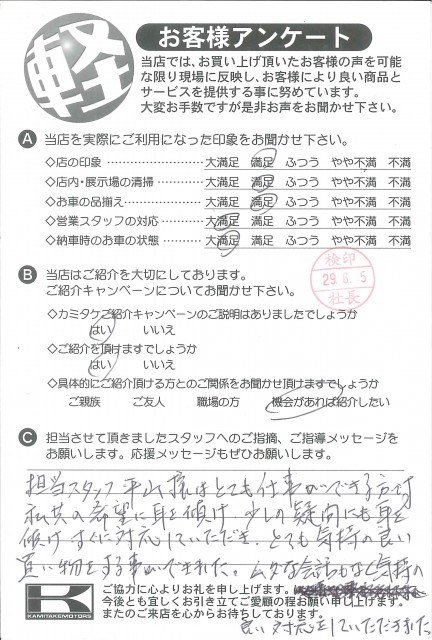 軽
お客様アンケート
当店では、お買い上げ頂いたお客様の声を可能
な限り現場に反映し、お客様により良い商品と
サービスを提供する事に努めています。
大変お手数ですが是非お声をお聞かせ下さい。
A 当店を実際にご利用になった印象をお聞かせ下さい。
◇店の印象 ………………… 大満足 満足 ふつう やや不満 不満
◇店内・展示場の清掃 ………… 大満足 満足 ふつう やや不満 不満
◇お車の品揃え ……………… 大満足 満足 ふつう やや不満 不満
◇営業スタッフの対応 ………… 大満足 満足 ふつう やや不満 不満
◇納車時のお車の状態 ………… 大満足 満足 ふつう やや不満 不満
B 当店はご紹介を大切にしております。
ご紹介キャンペーンについてお聞かせ下さい。
検印
29.6.5
社長
◇カミタケご紹介キャンペーンのご説明はありましたでしょうか
はい いいえ
◇ご紹介を頂けますでしょうか
はい いいえ
◇具体的にご紹介頂ける方とのご関係をお聞かせ頂けますでしょうか
ご親族 ご友人 職場の方 機会があれば紹介したい
C 担当させて頂きましたスタッフへのご指摘、ご指導メッセージを
お願いします。応援メッセージもぜひお願いします。
担当スタッフ 平山様はとても仕事ができる方で
私共の希望に耳を傾け 少しの疑問にも耳を
傾け すぐに対応していただき、とても気持の良い
買い物をする事ができました。ムダな会話もなく気持の
良い対応をしていただきました
KAMITAKEMOTORS
ご協力に心よりお礼を申し上げます。
今後とも宜しくお引き立てご愛顧の程お願い申し上げます。
またのご来店を心からお待ちしております。